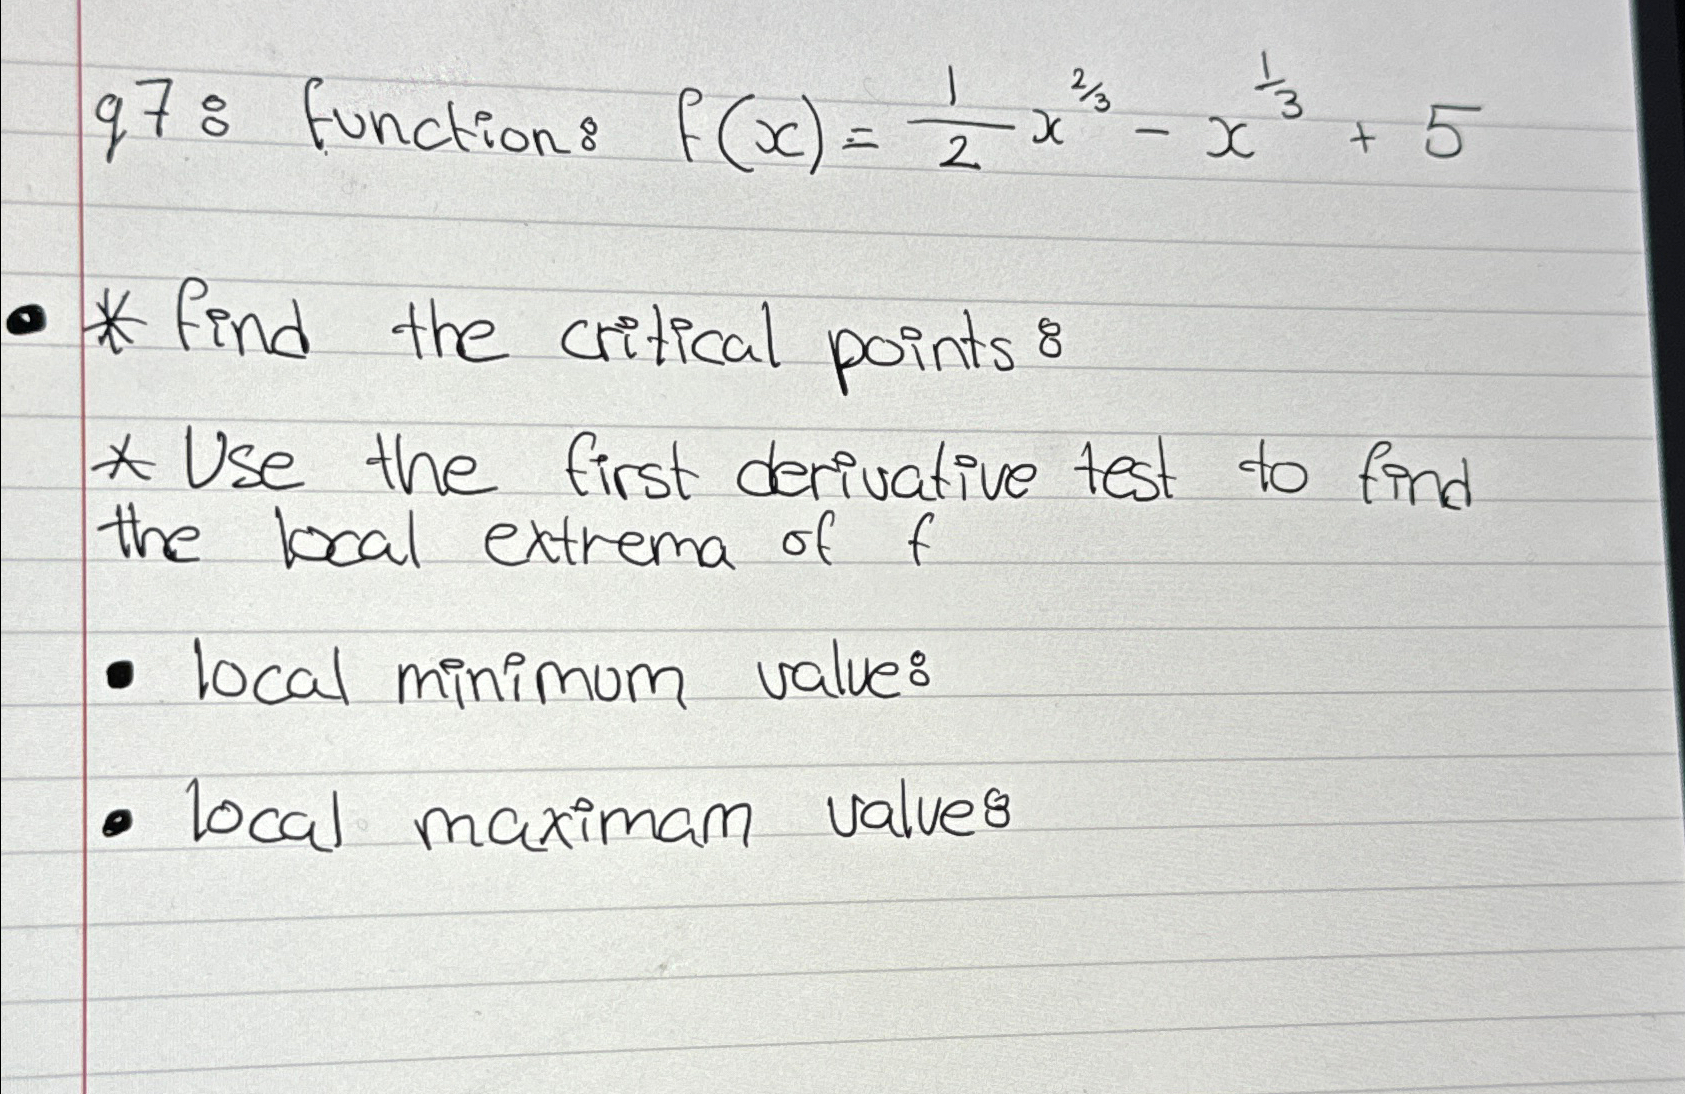 q7: function: f(x) = 1/2 x^2/3 - x^1/3 + 5
* find the critical points:
* Use the first derivative test to find
the local extrema of f
• local minimum value:
• local maximam value: